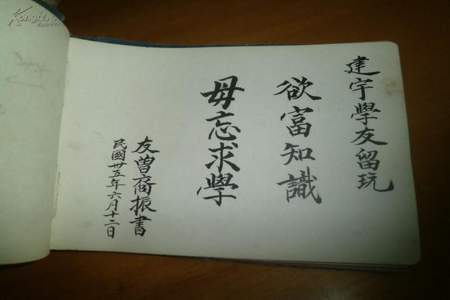 建宇學友留玩
欲富知識
毋忘求學
友曾裔振書
民國卅五年六月十二日